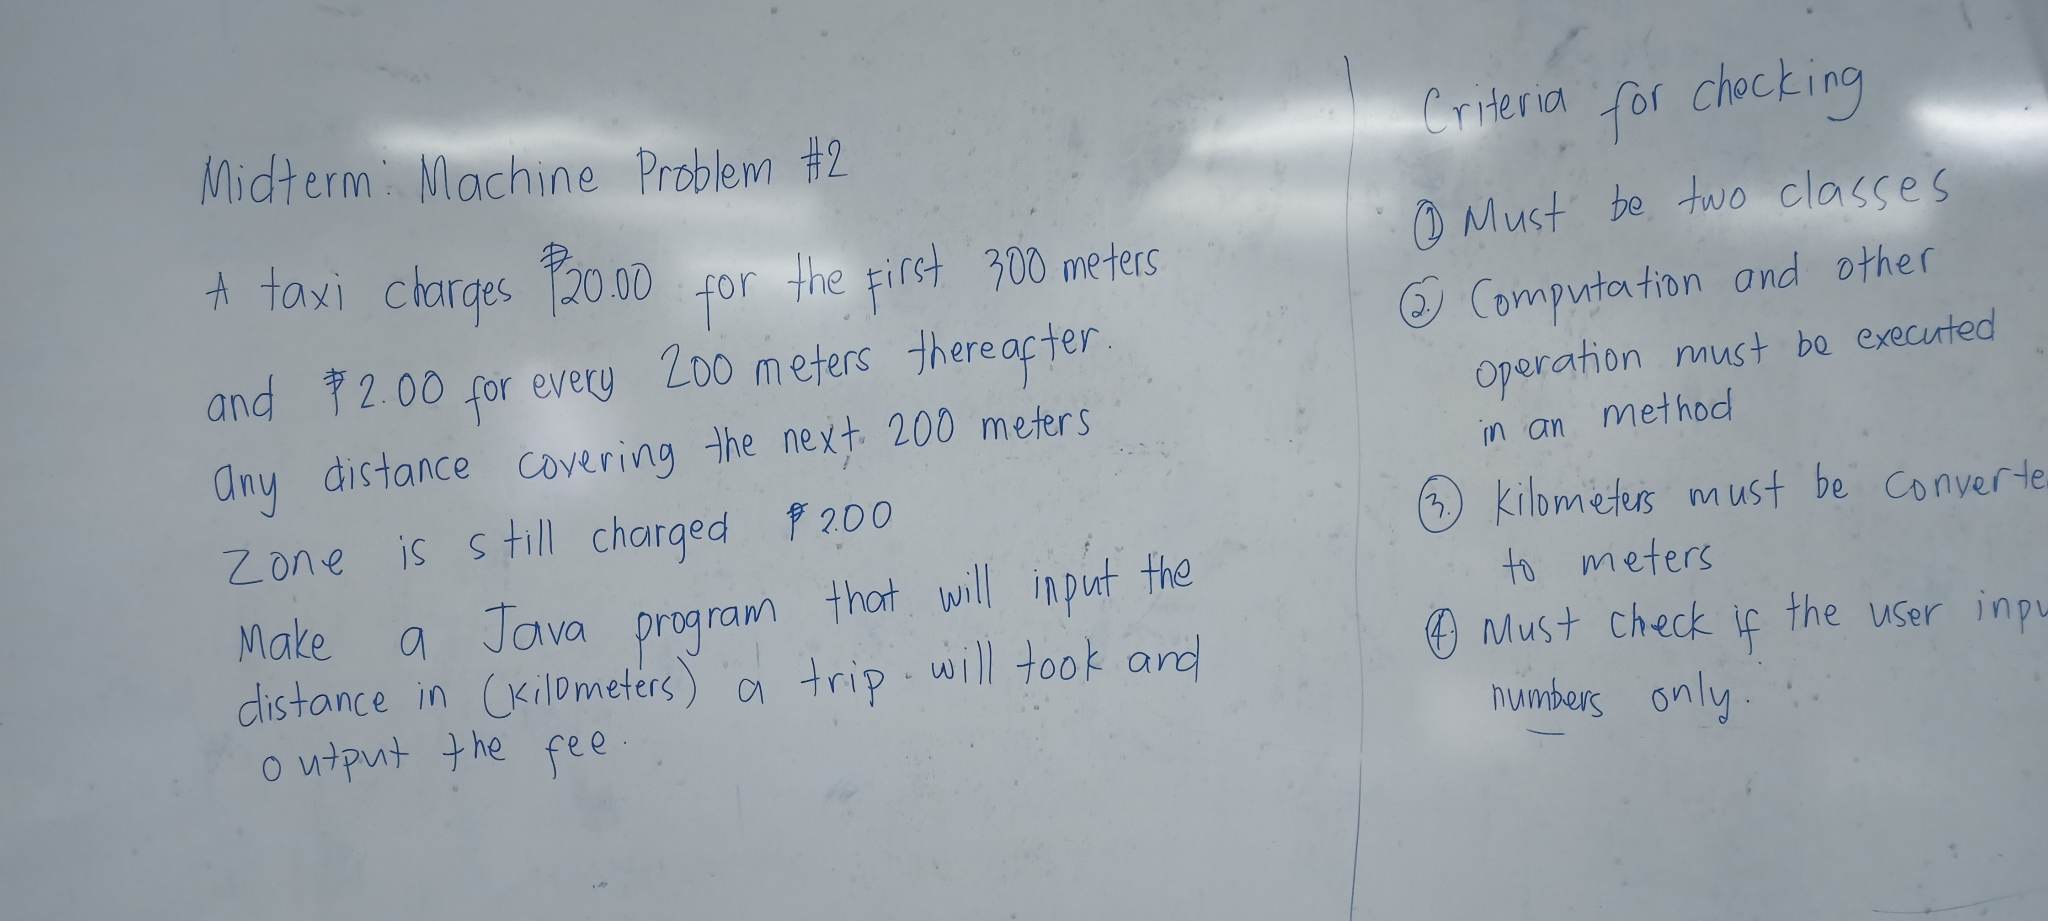 Midterm: Machine Problem #2
A taxi charges ₱20.00 for the First 300 meters
and ₱2.00 for every 200 meters thereafter.
any distance covering the next 200 meters
zone is still charged ₱2.00
Make a Java program that will input the
distance in (kilometers) a trip will took and
output the fee.
Criteria for checking
① Must be two classes
②. Computation and other
operation must be executed
in an method
③. kilometers must be Converte
to meters
④ Must check if the user inpu
numbers only.